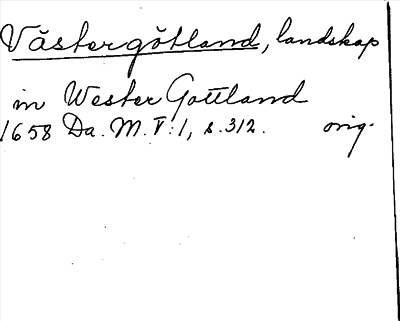 Västergötland, landskap
in Wester Gottland
1658 Da. M. V:1, s. 312. orig.